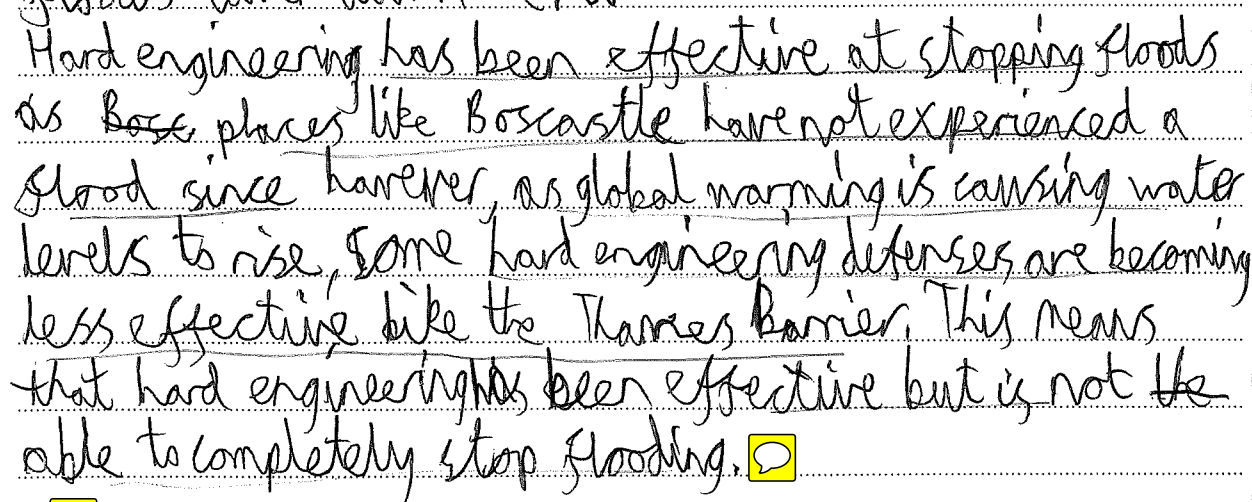 Hard engineering has been effective at stopping floods
as Bosc places like Boscastle have not experienced a
flood since however, as global warming is causing water
levels to rise, some hard engineering defenses, are becoming
less effective like the Thames Barrier. This means
that hard engineering has been effective but is not the
able to completely stop flooding.